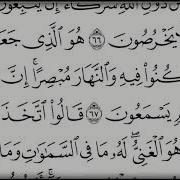 دُونِ ٱللَّهِ شُرَكَآءَ إِن يَتَّبِعُو
يَخْرُصُونَ ٦٦ هُوَ ٱلَّذِى جَعَ
كُنُوا۟ فِيهِ وَٱلنَّهَارَ مُبْصِرًا ۚ إِنَّ
يَسْمَعُونَ ٦٧ قَالُوا۟ ٱتَّخَذَ
هُوَ ٱلْغَنِىُّ ۖ لَهُۥ مَا فِى ٱلسَّمَٰوَٰتِ وَمَا